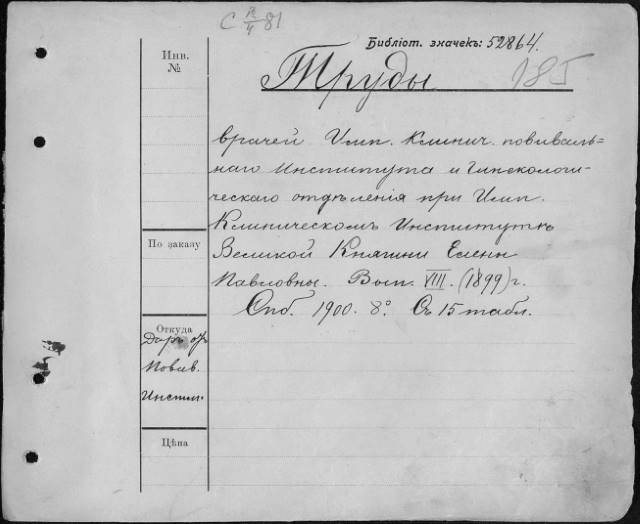 C IV/II 81
Библіот. значекъ: 52864.
Инв.
№
Труды
185
врачей Имп. Клинич. повиваль=
наго Института и Гинекологи-
ческаго отдѣленія при Имп.
Клиническомъ Институтѣ
По заказу
Великой Княгини Елены
Павловны. Вып. VIII. (1899) г.
Спб. 1900. 8°. Съ 15 табл.
Откуда
Даръ
Повив.
Инстит.
Цѣна